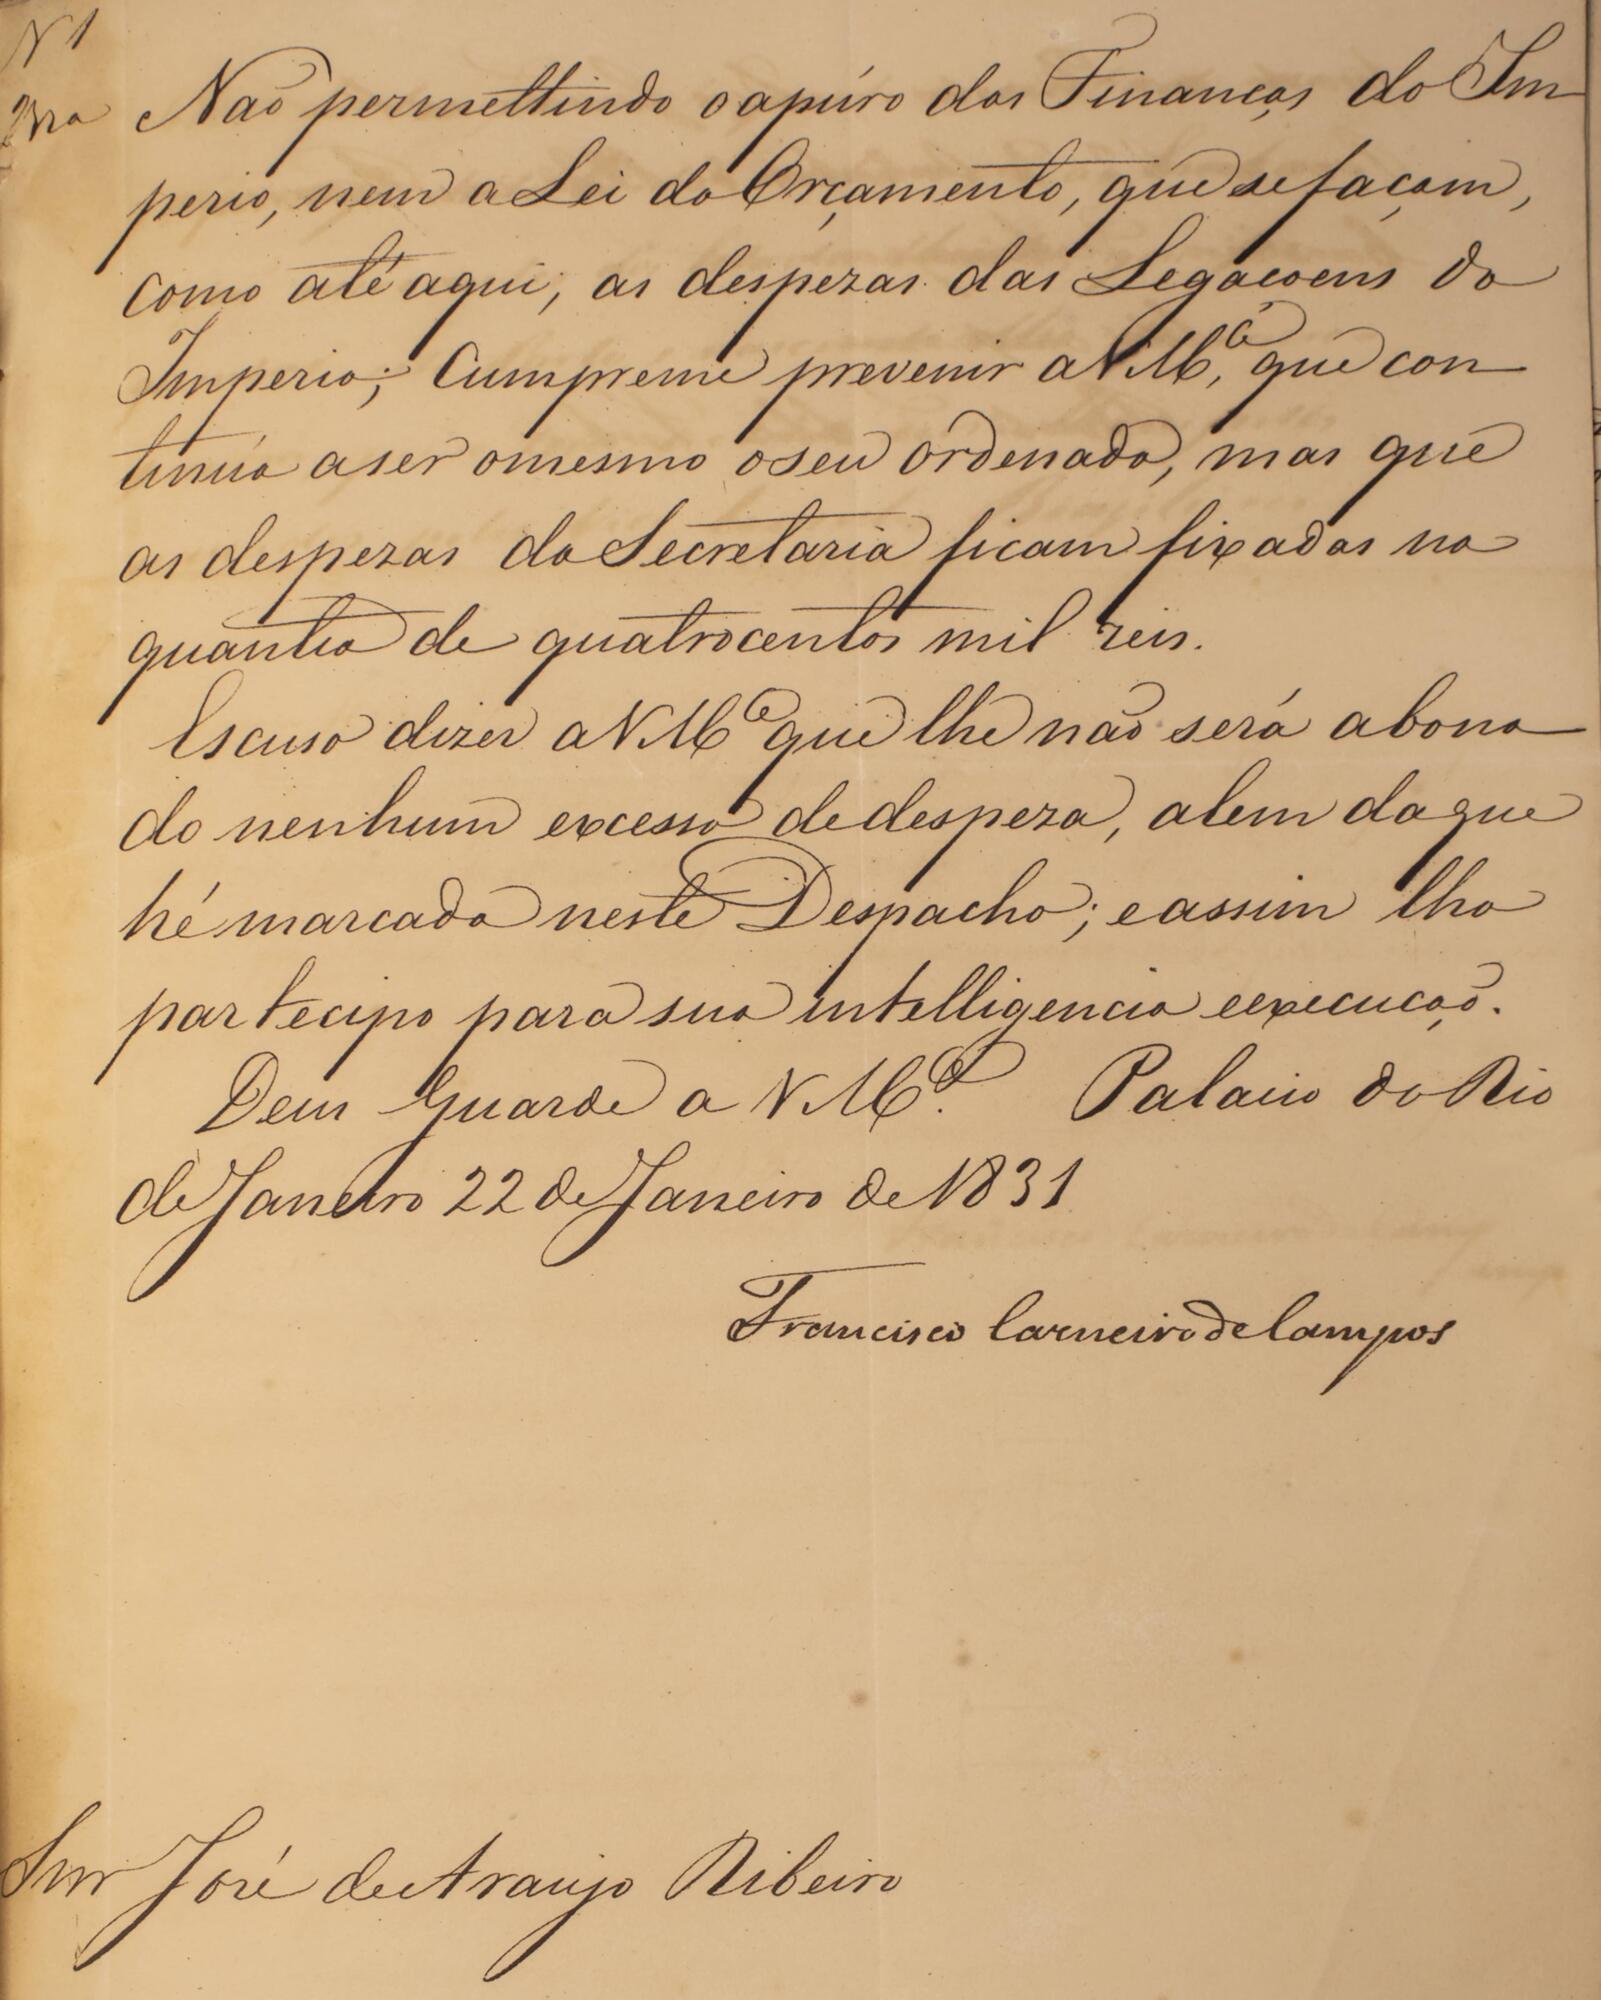 N 1
2ª Vra
Não permettindo o apúro das Finanças do Im
perio, nem a Lei do Orçamento, que se façam,
como até aqui, as despezas das Legacoens do
Imperio; Cumpreme prevenir a V M.ce que con
tinúa a ser o mesmo o seu Ordenado, mas que
as despezas da Secretaria ficam fixadas na
quantia de quatrocentos mil reis.
Escuso dizer a V M.ce que lhe não será abona
do nenhum excesso de despeza, alem da que
hé marcada neste Despacho; e assim lho
partecipo para sua intelligencia e execução.
Deus Guarde a V M.ce Palacio do Rio
de Janeiro 22 de Janeiro de 1831
Francisco Carneiro de Campos
Snr José de Araujo Ribeiro